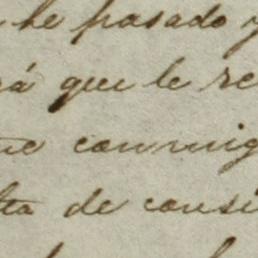 he pasado y
á que le re
ue conmig
lta de consi